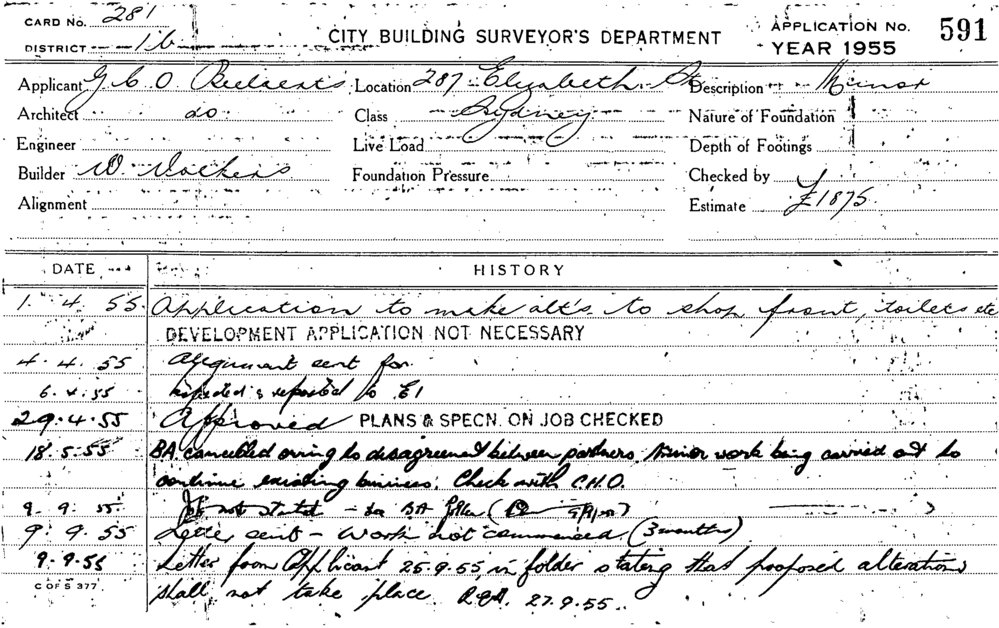 CARD NO. 281
DISTRICT 16
CITY BUILDING SURVEYOR'S DEPARTMENT
APPLICATION NO. 591
YEAR 1955
Applicant G. C. O. Location 287 Elizabeth St Description Minor
Architect do Class Sydney Nature of Foundation
Engineer Live Load Depth of Footings
Builder W. Foundation Pressure Checked by
Alignment Estimate £1875.
DATE HISTORY
1. 4. 55. Application to make alt's. to shop front, toilets etc
DEVELOPMENT APPLICATION NOT NECESSARY
4. 4. 55 Alignment sent for
6. 4. 55 Inspected & reported to E1
29. 4. 55 Approved PLANS & SPECN. ON JOB CHECKED
18. 5. 55 BA cancelled owing to disagreement between partners. Minor work being carried out to
continue existing business. Check with C.H.O.
9. 9. 55. Job not started - see BA
9. 9. 55 Letter sent - work not commenced (3 months)
9. 9. 55 Letter from applicant 25.9.55 in folder stating that proposed alterations
shall not take place. 27.9.55.
C OF S 377